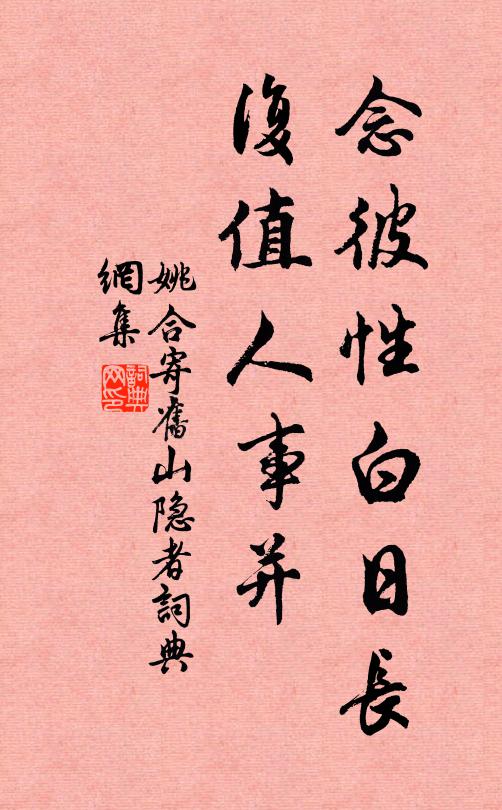 念彼性白日長
復值人事并
姚合寄舊山隐者詞典
網集
詞典網印